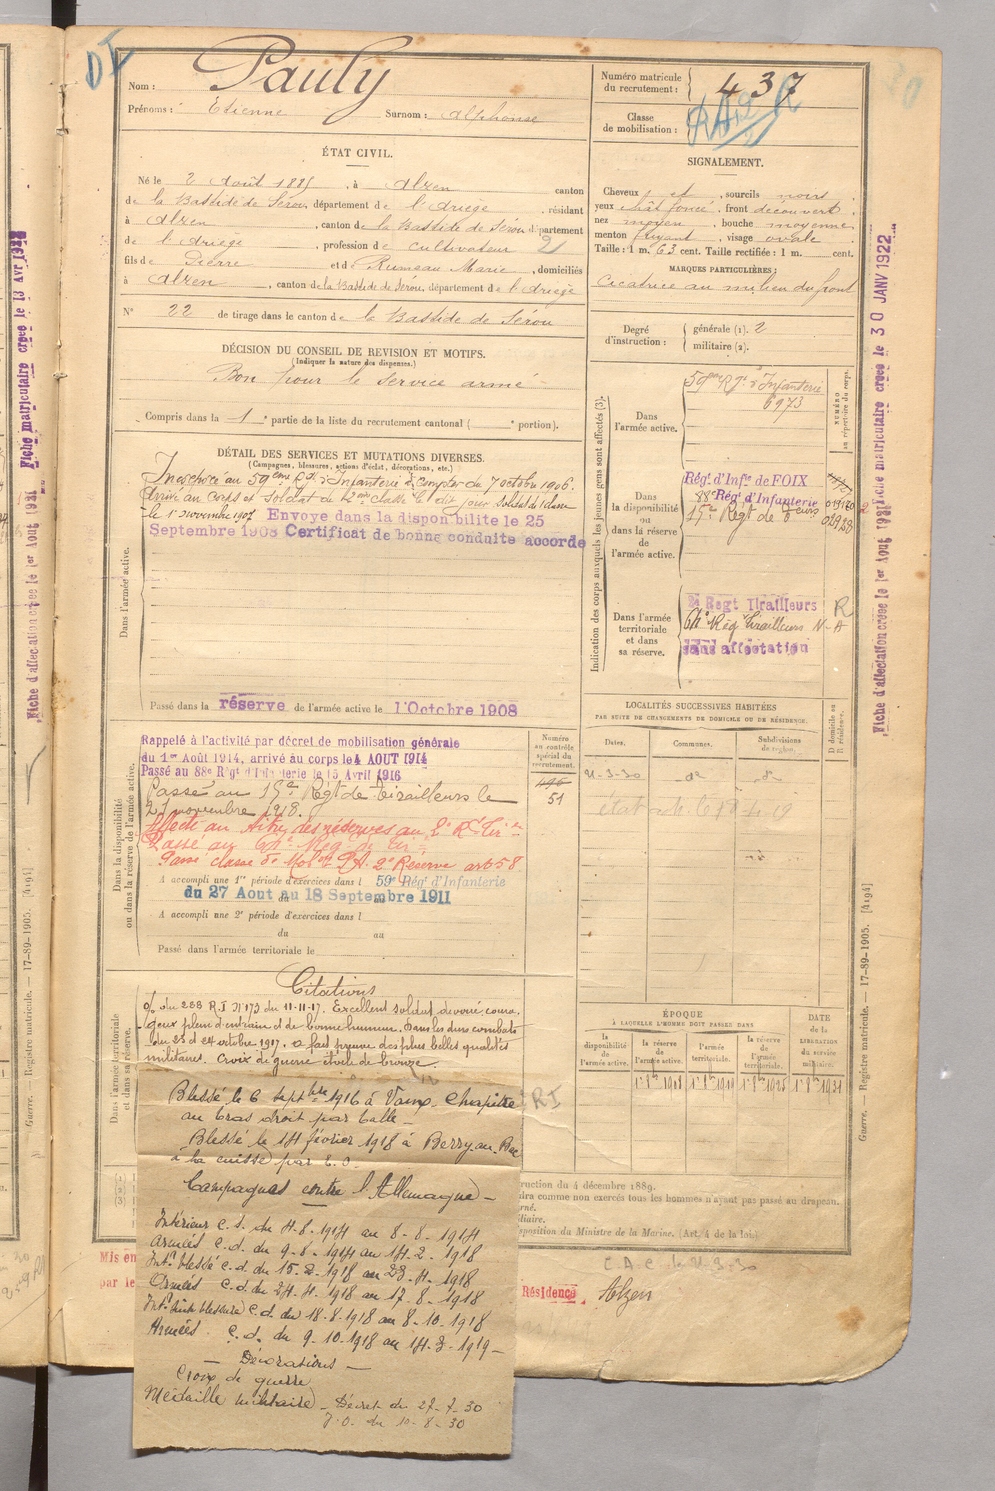 Nom : Pauly
Prénoms : Etienne Surnom : Alphonse
Numéro matricule du recrutement : 437
Classe de mobilisation :
ÉTAT CIVIL.
Né le 2 Août 1885, à Alzen canton
de la Bastide de Sérou, département de l'Ariège, résidant
à Alzen, canton de la Bastide de Sérou, département
de l'Ariège, profession de cultivateur
fils de Pierre et de Rumeau Marie, domiciliés
à Alzen, canton de la Bastide de Sérou, département de l'Ariège
N° 22 de tirage dans le canton de la Bastide de Sérou
SIGNALEMENT.
Cheveux et, sourcils noirs
yeux chât foncé, front découvert
nez moyen, bouche moyenne
menton fuyant, visage ovale
Taille : 1 m. 63 cent. Taille rectifiée : 1 m. cent.
MARQUES PARTICULIÈRES :
Cicatrice au milieu du front
Degré d'instruction : générale (1). 2
militaire (2).
DÉCISION DU CONSEIL DE REVISION ET MOTIFS.
(Indiquer la nature des dispenses.)
Bon pour le service armé
Compris dans la 1e partie de la liste du recrutement cantonal ( e portion).
DÉTAIL DES SERVICES ET MUTATIONS DIVERSES.
(Campagnes, blessures, actions d'éclat, décorations, etc.)
Dans l'armée active.
Incorporé au 59ème Rgt d'Infanterie à compter du 7 octobre 1906.
Arrivé au corps et soldat de 2eme classe le dit jour
le 1er novembre 1907 Envoye dans la disponibilite le 25
Septembre 1908 Certificat de bonne conduite accorde
Passé dans la réserve de l'armée active le 1 Octobre 1908
Indication des corps auxquels les jeunes gens sont affectés (3).
NUMÉRO au répertoire du corps.
Dans l'armée active.
59eme Rgt d'Infanterie
6973
Dans la disponibilité ou dans la réserve de l'armée active.
Régt d'Infie de FOIX
88e Régt d'Infanterie 019160
15e Regt de Tirailleurs 02928
Dans l'armée territoriale et dans sa réserve.
2e Regt Tirailleurs R
64e Rég Tirailleurs N-A
sans affectation
Dans la disponibilité ou dans la réserve de l'armée active.
Rappelé à l'activité par décret de mobilisation générale
du 1er Août 1914, arrivé au corps le 4 AOUT 1914
Passé au 88e Régt d'Infanterie le 15 Avril 1916
Passé au 15e Regt de Tirailleurs le
21 novembre 1918.
Affecté au des réserves au 2e Rt Tir
Passé au 64e Reg de Tir
Passé classe de Mob 2e Réserve art 58
A accompli une 1re période d'exercices dans l 59e Régt d'Infanterie
du 27 Aout au 18 Septembre 1911
A accompli une 2e période d'exercices dans l
du au
Passé dans l'armée territoriale le
Numéro au contrôle spécial du recrutement.
51
LOCALITÉS SUCCESSIVES HABITÉES
PAR SUITE DE CHANGEMENTS DE DOMICILE OU DE RÉSIDENCE.
Dates. Communes. Subdivisions de région. D domicile ou R résidence.
ÉPOQUE
À LAQUELLE L'HOMME DOIT PASSER DANS
la disponibilité de l'armée active. la réserve de l'armée active. l'armée territoriale. la réserve de l'armée territoriale.
DATE de la LIBÉRATION du service militaire.
Dans l'armée territoriale et dans sa réserve.
Citations
O/ du 288 R.I N°173 du 11-11-17. Excellent soldat dévoué, coura,
geux plein d'entrain et de bonne humeur. Dans les durs combats
du 23 et 24 octobre 1917. a fait preuve des plus belles qualités
militaires. Croix de guerre étoile de bronze.
Blessé le 6 septbre 1916 à Vaux Chapitre
au bras droit par balle
Blessé le 14 février 1918 à Berry au Bac
à la cuisse par E.O.
Campagnes contre l'Allemagne
Intérieur C.S. du 4-8-1914 au 8-8-1914
Armées C.d. du 9-8-1914 au 14-2-1918
Intr blessé C.d. du 15-2-1918 au 23-4-1918
Armées C.d. du 24-4-1918 au 17-8-1918
Intr blessure C.d. du 18-8-1918 au 8-10-1918
Armées C.d. du 9-10-1918 au 14-3-1919
Décorations
Croix de guerre
Médaille militaire Décret du 27-7-30
J.O. du 10-8-30
ruction du 4 décembre 1889.
dra comme non exercés tous les hommes n'ayant pas passé au drapeau.
sposition du Ministre de la Marine. (Art. 4 de la loi.)
Mis en
par le
Résidence Alzen
Fiche d'affectation créée le 1er Aout 1931
Fiche matriculaire créée le 30 JANV 1922
Guerre. — Registre matricule. — 17-89-1905. [4194]
Fiche d'affectation créée le 1er Aout 1931
Fiche matriculaire créée le 13 Avr
Guerre. — Registre matricule. — 17-89-1905. [4194]